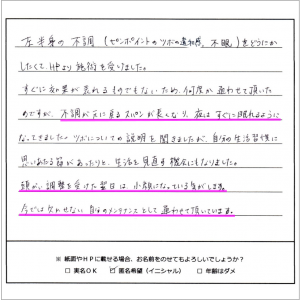 左半身の不調（ピンポイントのツボの違和感、不眠）をどうにか
したくて、HPより施術を受けました。
すぐに効果が表れるものでもないため、何度か通わせて頂いた
のですが、不調が元に戻るスパンが長くなり、夜はすぐに眠れるように
なってきました。ツボについての説明を聞きましたが、自分の生活習慣に
思いあたる節があったりと、生活を見直す機会にもなりました。
頭がい調整を受けた翌日は、小顔になっている気がします。
今では欠かせない自分のメンテナンスとして通わせて頂いています。
※ 紙面やHPに載せる場合、お名前をのせてもよろしいでしょうか？
□ 実名OK ☑ 匿名希望（イニシャル） □ 年齢はダメ